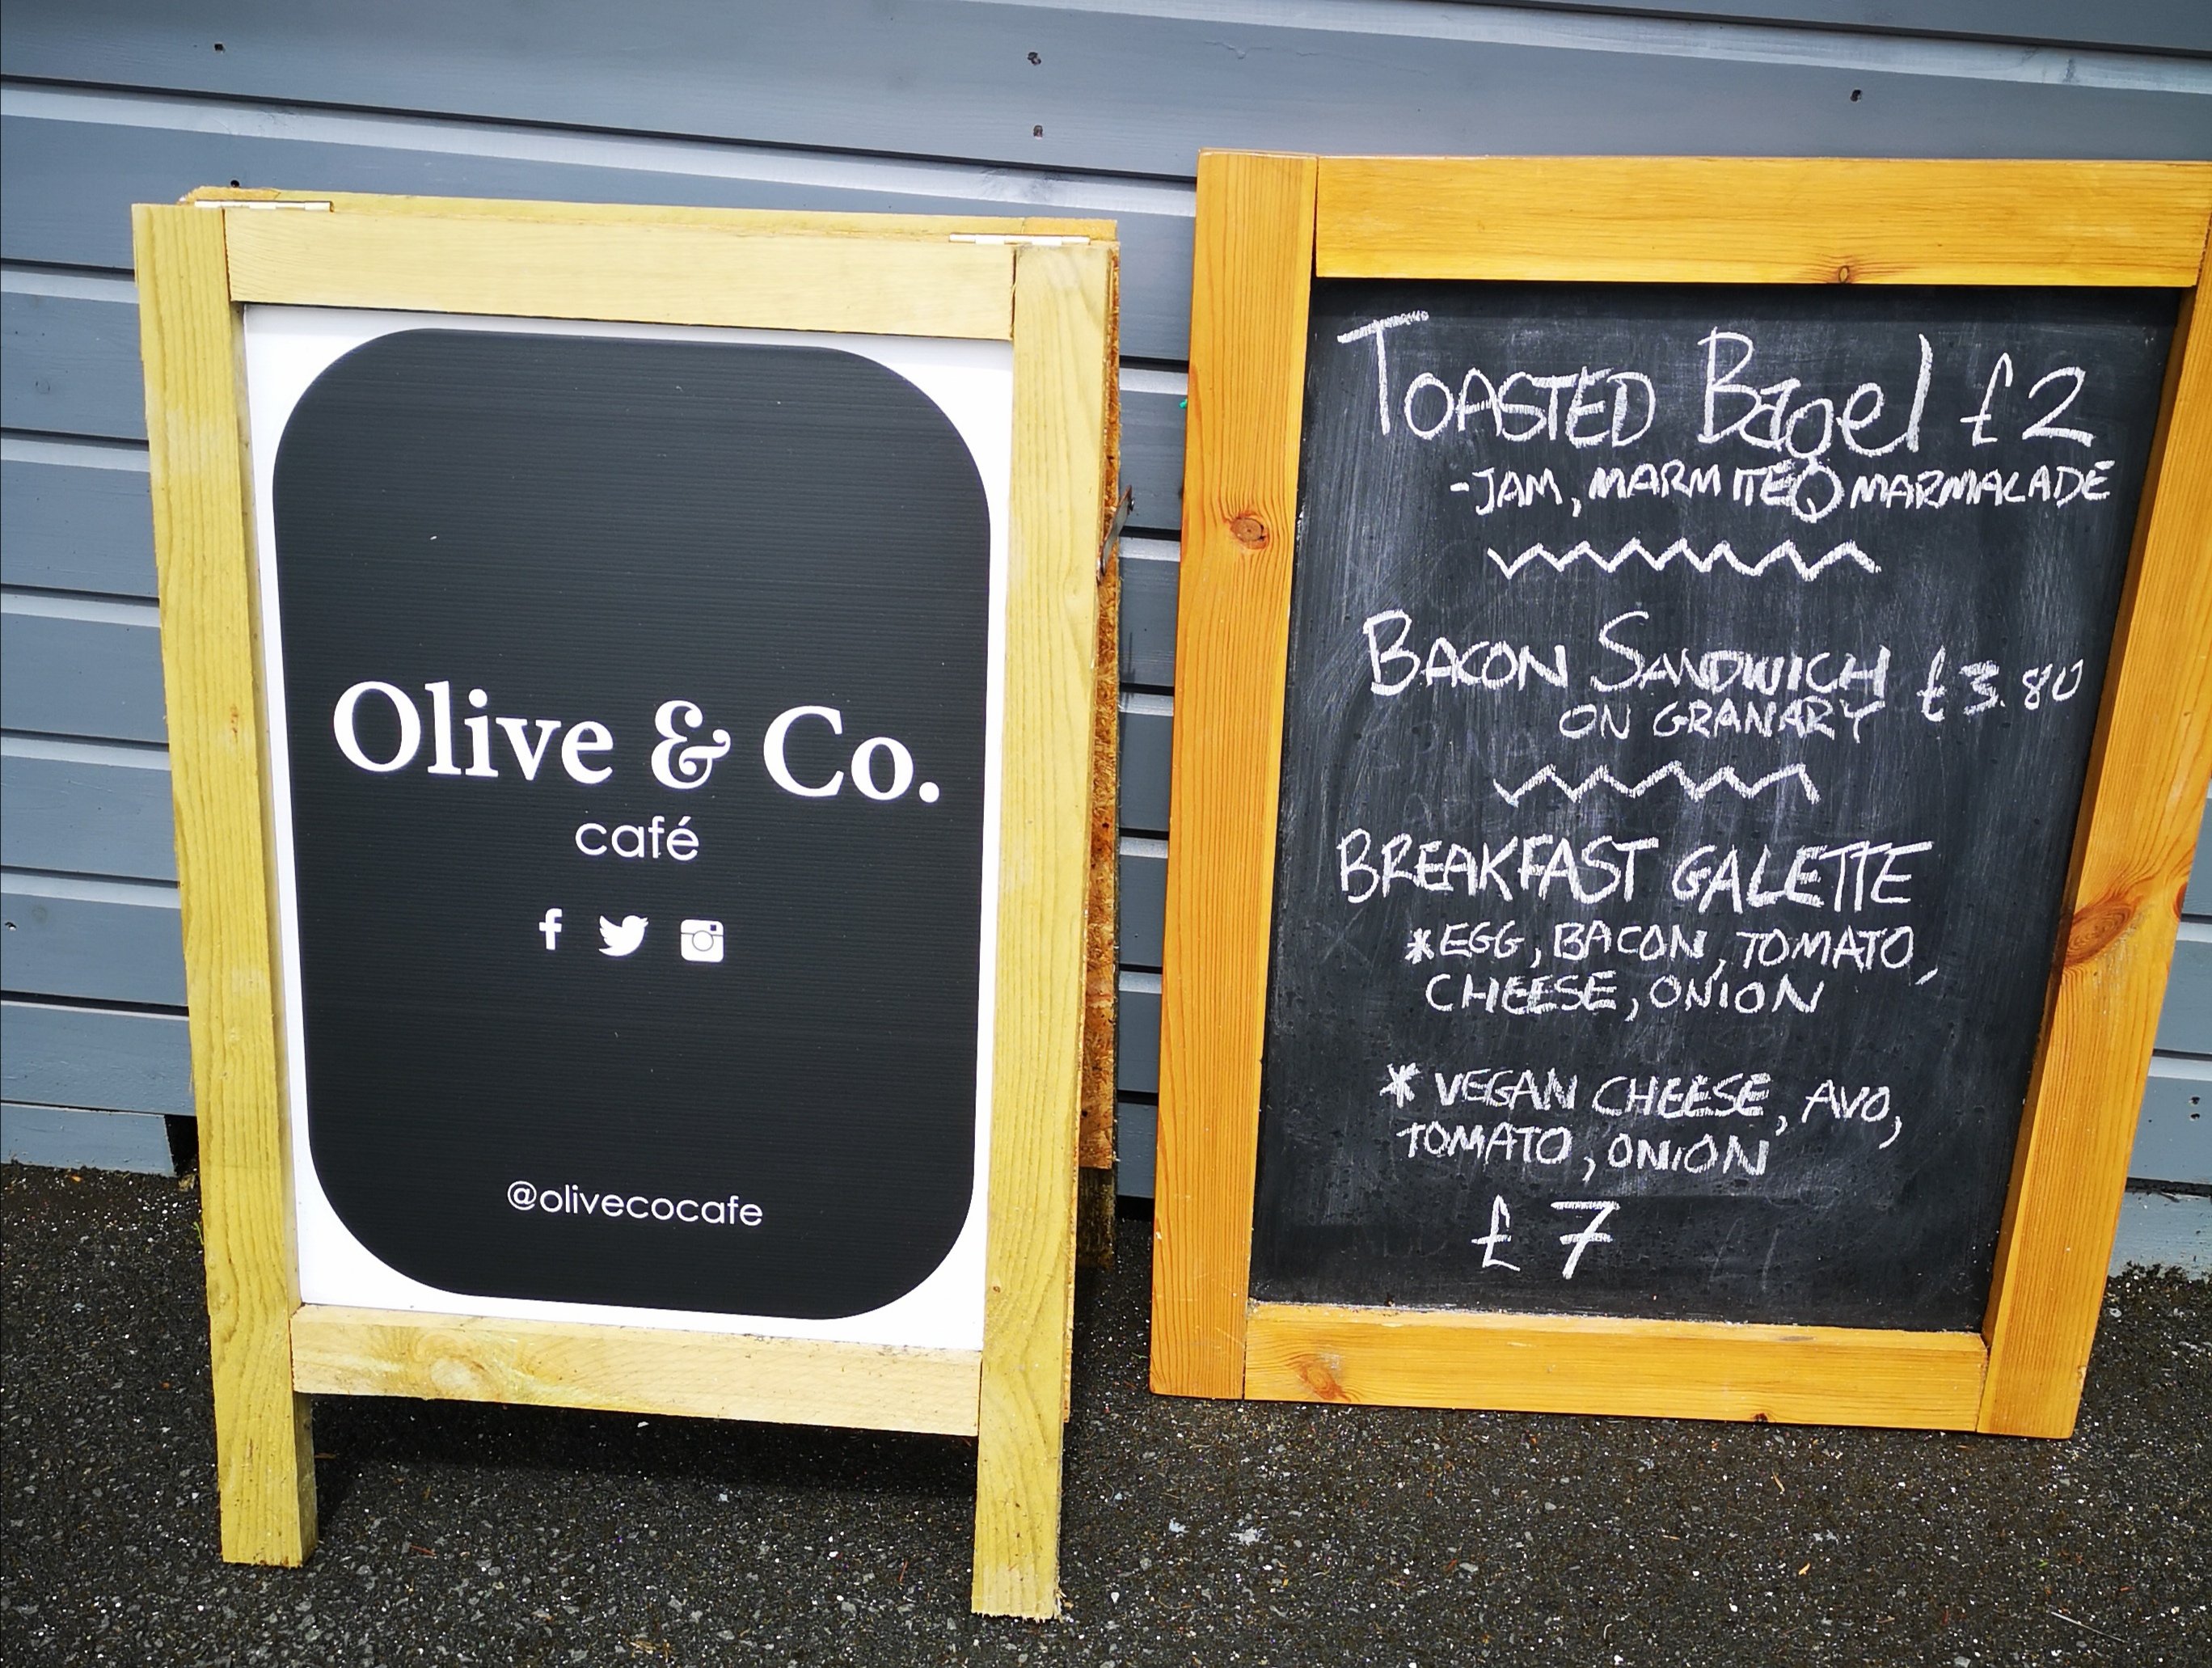 Olive & Co.
café
@olivecocafe
TOASTED Bagel £2
-JAM, MARMITE, MARMALADE
BACON SANDWICH £3.80
ON GRANARY
BREAKFAST GALETTE
*EGG, BACON, TOMATO,
CHEESE, ONION
* VEGAN CHEESE, AVO,
TOMATO, ONION
£7